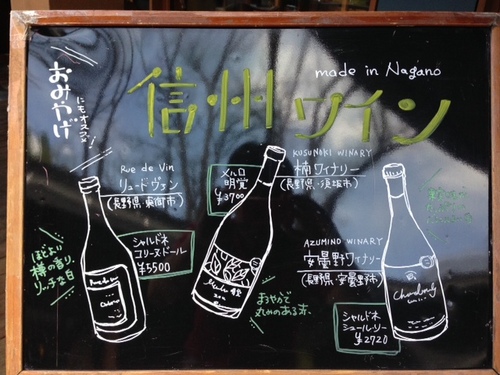 おみやげ
にもオススメ!!
made in Nagano
信州ワイン
Rue de Vin
リュードヴァン
(長野県・東御市)
シャルドネ
コリーヌドール
¥5500
ほどよい
樽の香り、
リッチな白
メルロ
明覚
¥3700
KUSUNOKI WINARY
楠ワイナリー
(長野県・須坂市)
まろやかで
丸みのある赤、
AZUMINO WINARY
安曇野ワイナリー
(長野県・安曇野市)
シャルドネ
シュール・リー
¥2720
Chardonnay